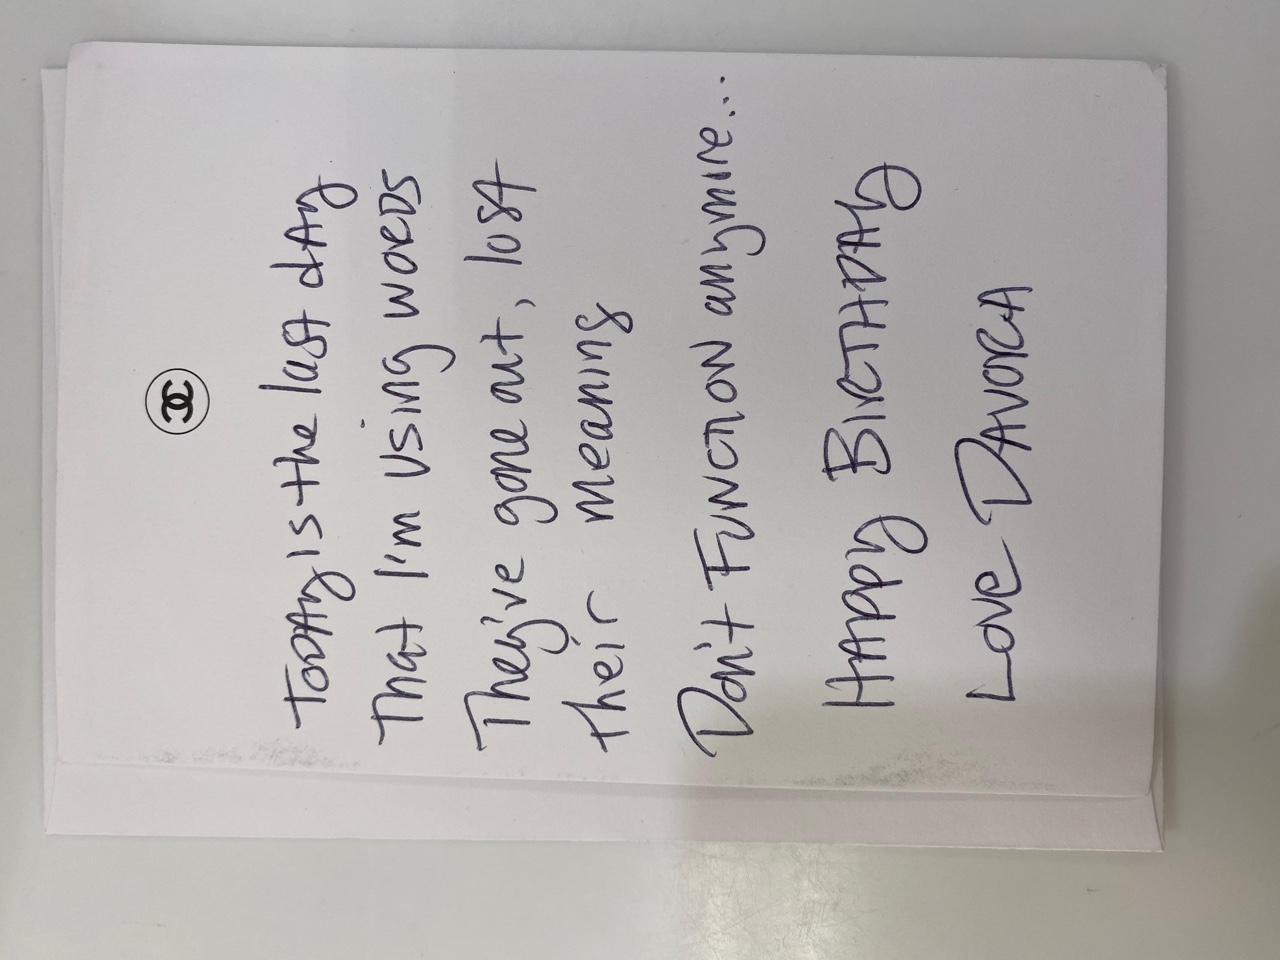 TODAY IS the last dAy
That I'm USing WORDS
They've gone out, lost
their meaning
Don't FUNCTION anymire...
HAppy BIRTHDAy
Love DAVORA